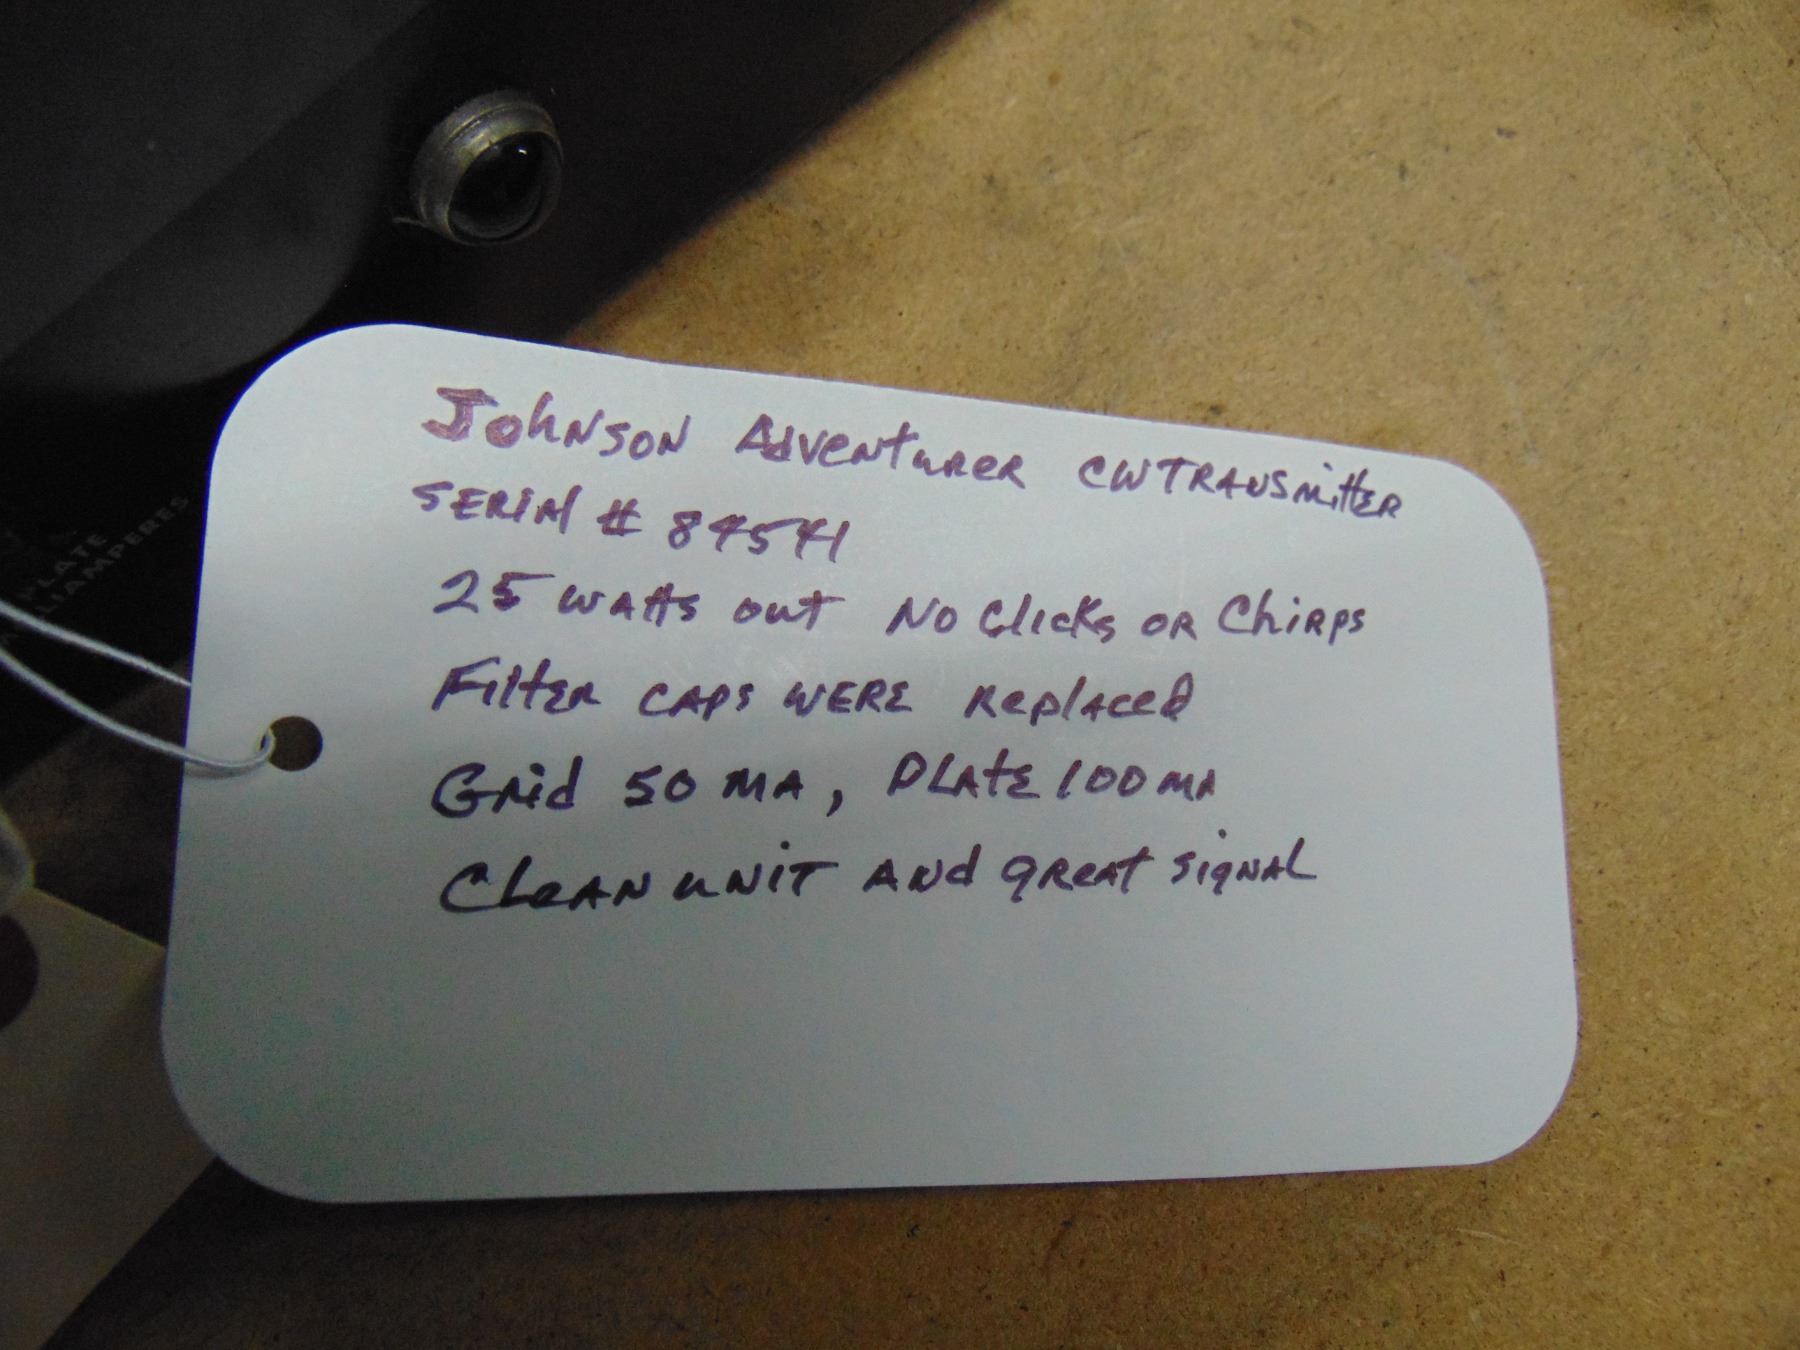 PLATE
MILLIAMPERES
Johnson Adventurer CW Transmitter
Serial # 84541
25 watts out No Clicks or Chirps
Filter caps were replaced
Grid 50 ma, Plate 100 ma
Clean unit and great signal